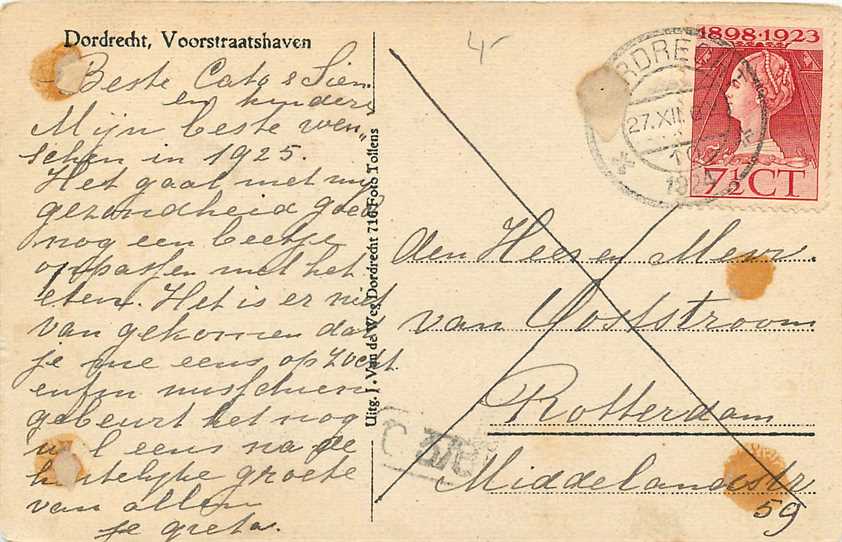 Dordrecht, Voorstraatshaven
Beste Cato & Sien
en kinders
Mijn beste wen„
schen in 1925.
Het gaat met my
gezondheid goed
nog een beetje
oppassen met het
eten. Het is er niet
van gekomen dat
je me eens op zocht
enfin misschien
gebeurt het nog
wel eens na de
hartelijke groete
van allen
je greta.
Uitg. J. Van de Weg Dordrecht 716 Foto Tollens
4
1898·1923
7½ CT
DORDRECHT
27.XII
1924
den Heer en Mevr
van Ooststroom
Rotterdam
Middelandstr
59